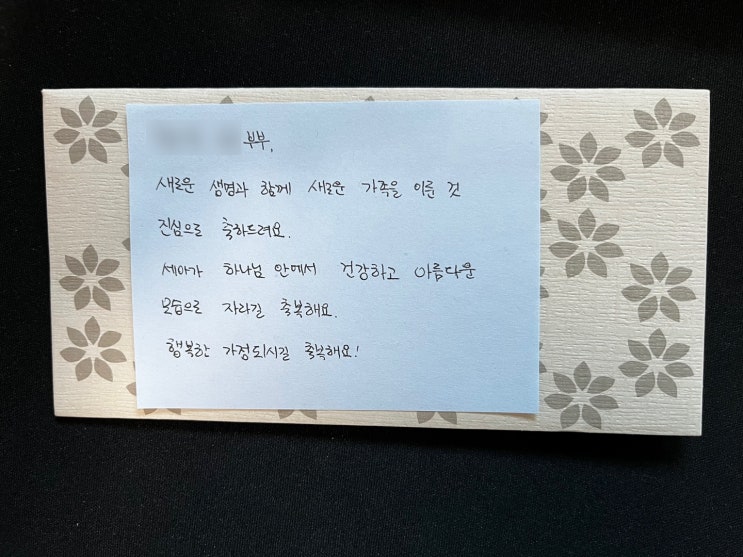 부부,
새로운 생명과 함께 새로운 가족을 이룬 것
진심으로 축하드려요.
세아가 하나님 안에서 건강하고 아름다운
모습으로 자라길 축복해요.
행복한 가정되시길 축복해요!